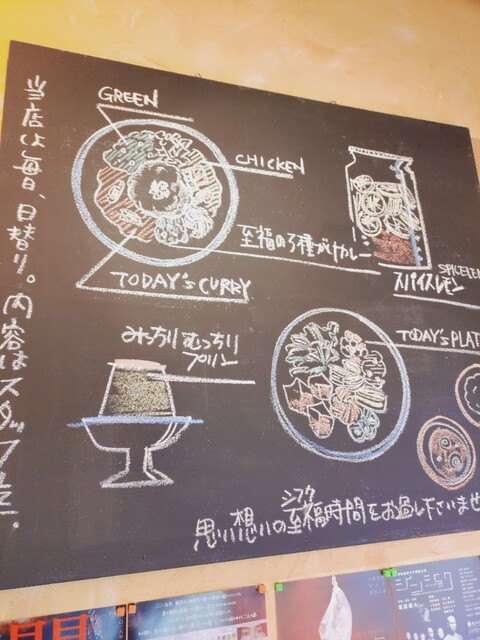 当店は毎日、日替り。内容はスタッフまで。
GREEN
CHICKEN
至福の3種がけカレー
TODAY'S CURRY
スパイスレモン
みっちり むっちり
プリン
TODAY'S PLAT
シフク
思い想いの至福時間をお過しくださいませ